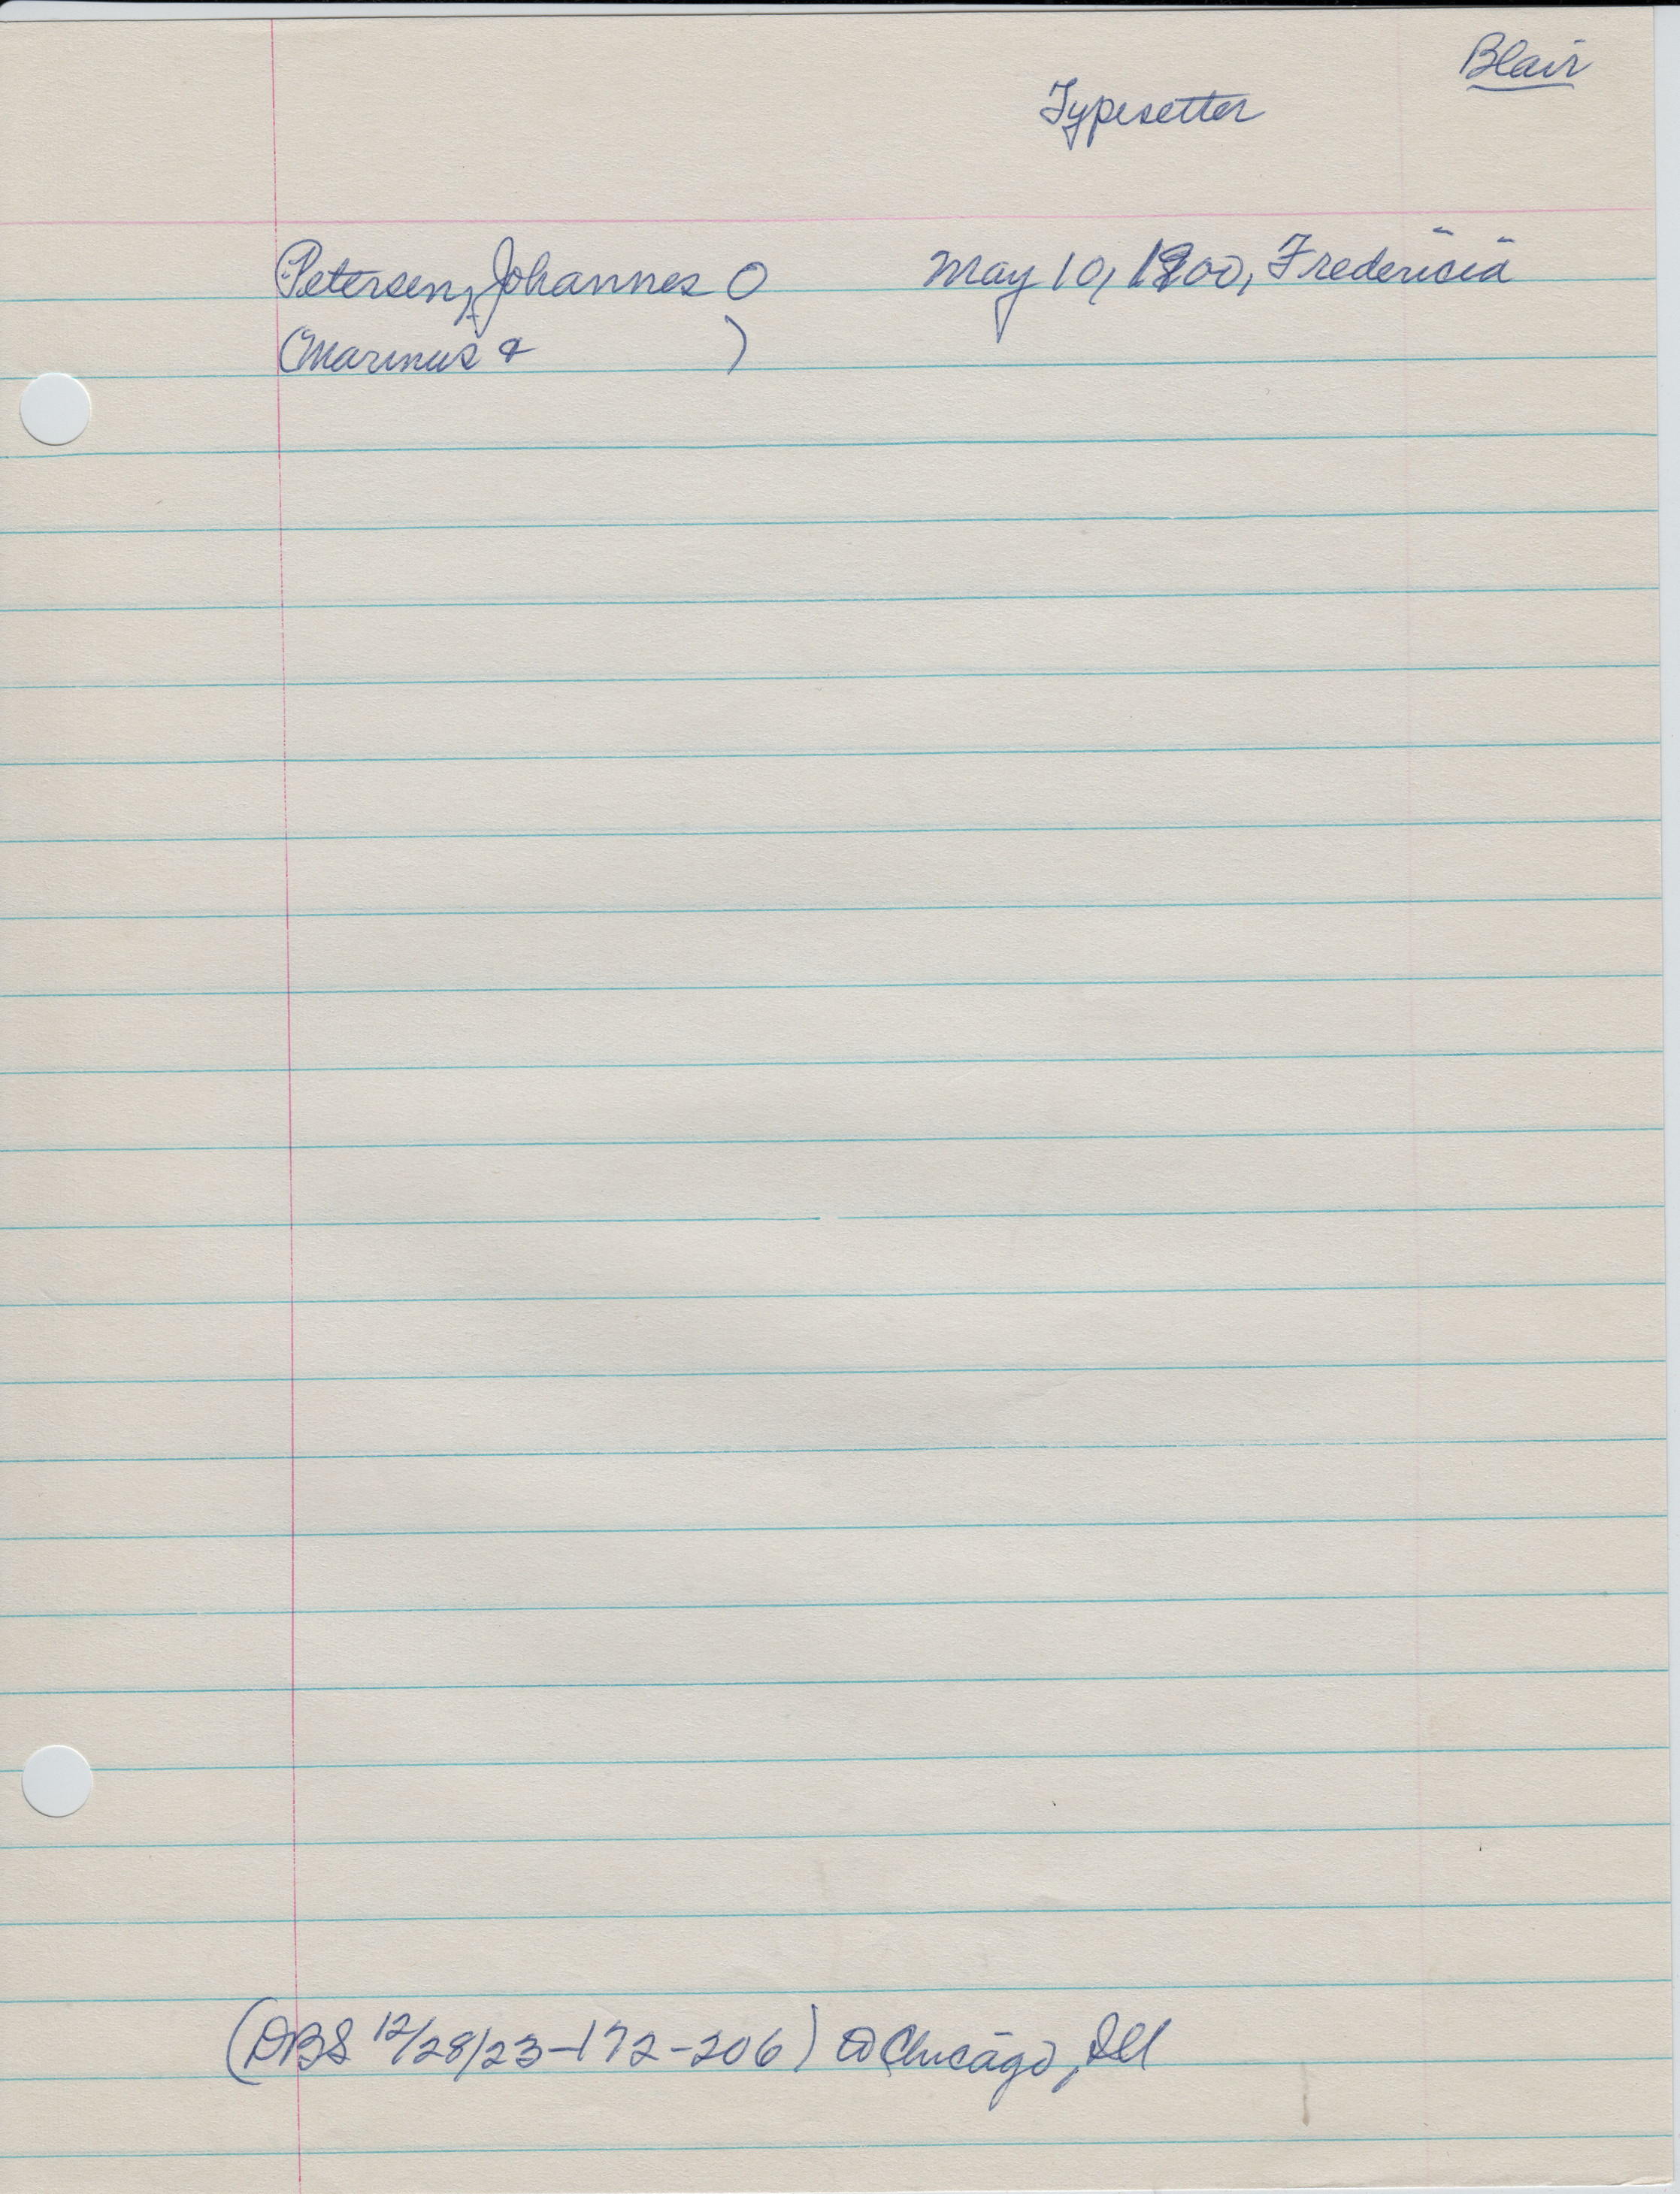 Blair
Typesetter
Petersen, Johannes O May 10, 1900, Fredericia
(Marinus & )
(DBS 12/28/23-172-206) @ Chicago, Ill